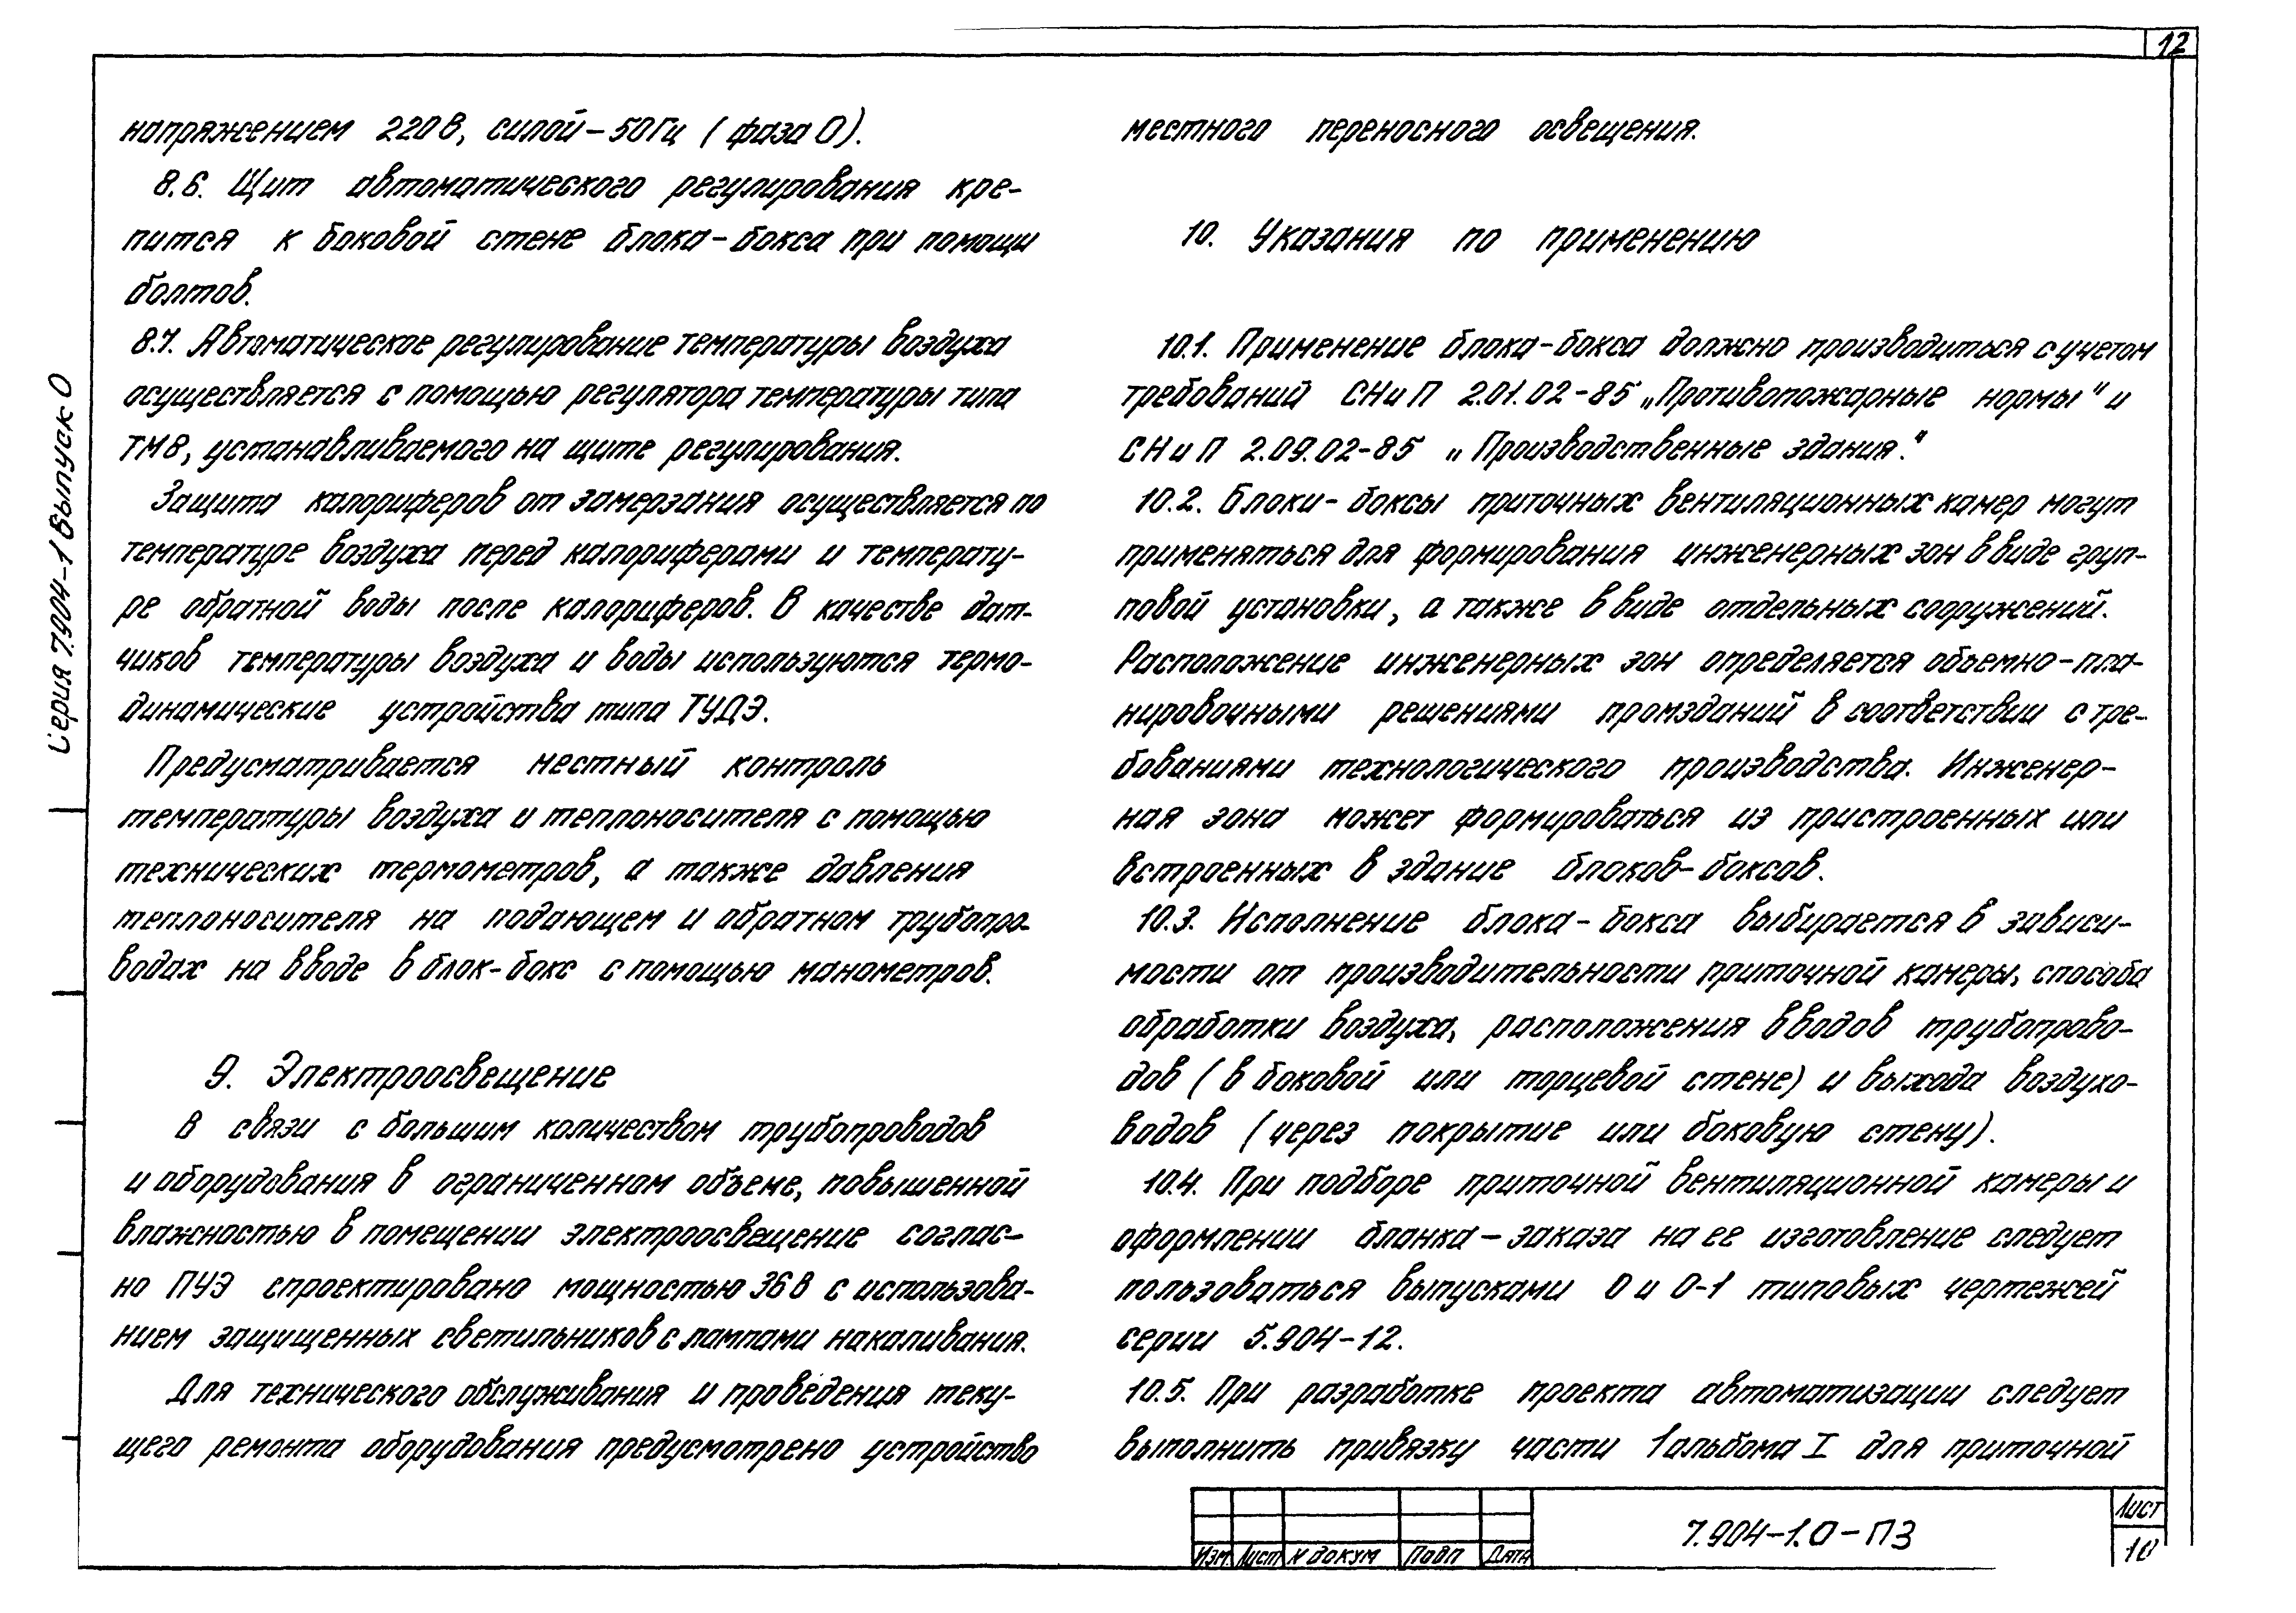 12
Серия 7.904-1 Выпуск 0
напряжением 220В, силой-50Гц (фаза 0).
8.6. Щит автоматического регулирования кре-
пится к боковой стене блока-бокса при помощи
болтов.
8.7. Автоматическое регулирование температуры воздуха
осуществляется с помощью регулятора температуры типа
ТМ8, устанавливаемого на щите регулирования.
Защита калориферов от замерзания осуществляется по
температуре воздуха перед калориферами и температу-
ре обратной воды после калориферов. В качестве дат-
чиков температуры воздуха и воды используются термо-
динамические устройства типа ТУДЭ.
Предусматривается местный контроль
температуры воздуха и теплоносителя с помощью
технических термометров, а также давления
теплоносителя на подающем и обратном трубопро-
водах на вводе в блок-бокс с помощью манометров.
9. Электроосвещение
В связи с большим количеством трубопроводов
и оборудования в ограниченном объеме, повышенной
влажностью в помещении электроосвещение соглас-
но ПУЭ спроектировано мощностью 36В с использова-
нием защищенных светильников с лампами накаливания.
Для технического обслуживания и проведения теку-
щего ремонта оборудования предусмотрено устройство
местного переносного освещения.
10. Указания по применению
10.1. Применение блока-бокса должно производиться с учетом
требований СНиП 2.01.02-85 „Противопожарные нормы“ и
СНиП 2.09.02-85 „Производственные здания.“
10.2. Блоки-боксы приточных вентиляционных камер могут
применяться для формирования инженерных зон в виде груп-
повой установки, а также в виде отдельных сооружений.
Расположение инженерных зон определяется объемно-пла-
нировочными решениями промзданий в соответствии с тре-
бованиями технологического производства. Инженер-
ная зона может формироваться из пристроенных или
встроенных в здание блоков-боксов.
10.3. Исполнение блока-бокса выбирается в зависи-
мости от производительности приточной камеры, способа
обработки воздуха, расположения вводов трубопрово-
дов (в боковой или торцевой стене) и выхода воздухо-
водов (через покрытие или боковую стену).
10.4. При подборе приточной вентиляционной камеры и
оформлении бланка-заказа на ее изготовление следует
пользоваться выпусками 0 и 0-1 типовых чертежей
серии 5.904-12.
10.5. При разработке проекта автоматизации следует
выполнить привязку части 1 альбома I для приточной
Изм Лист N докум Подп Дата
7.904-1.0-ПЗ
Лист
10